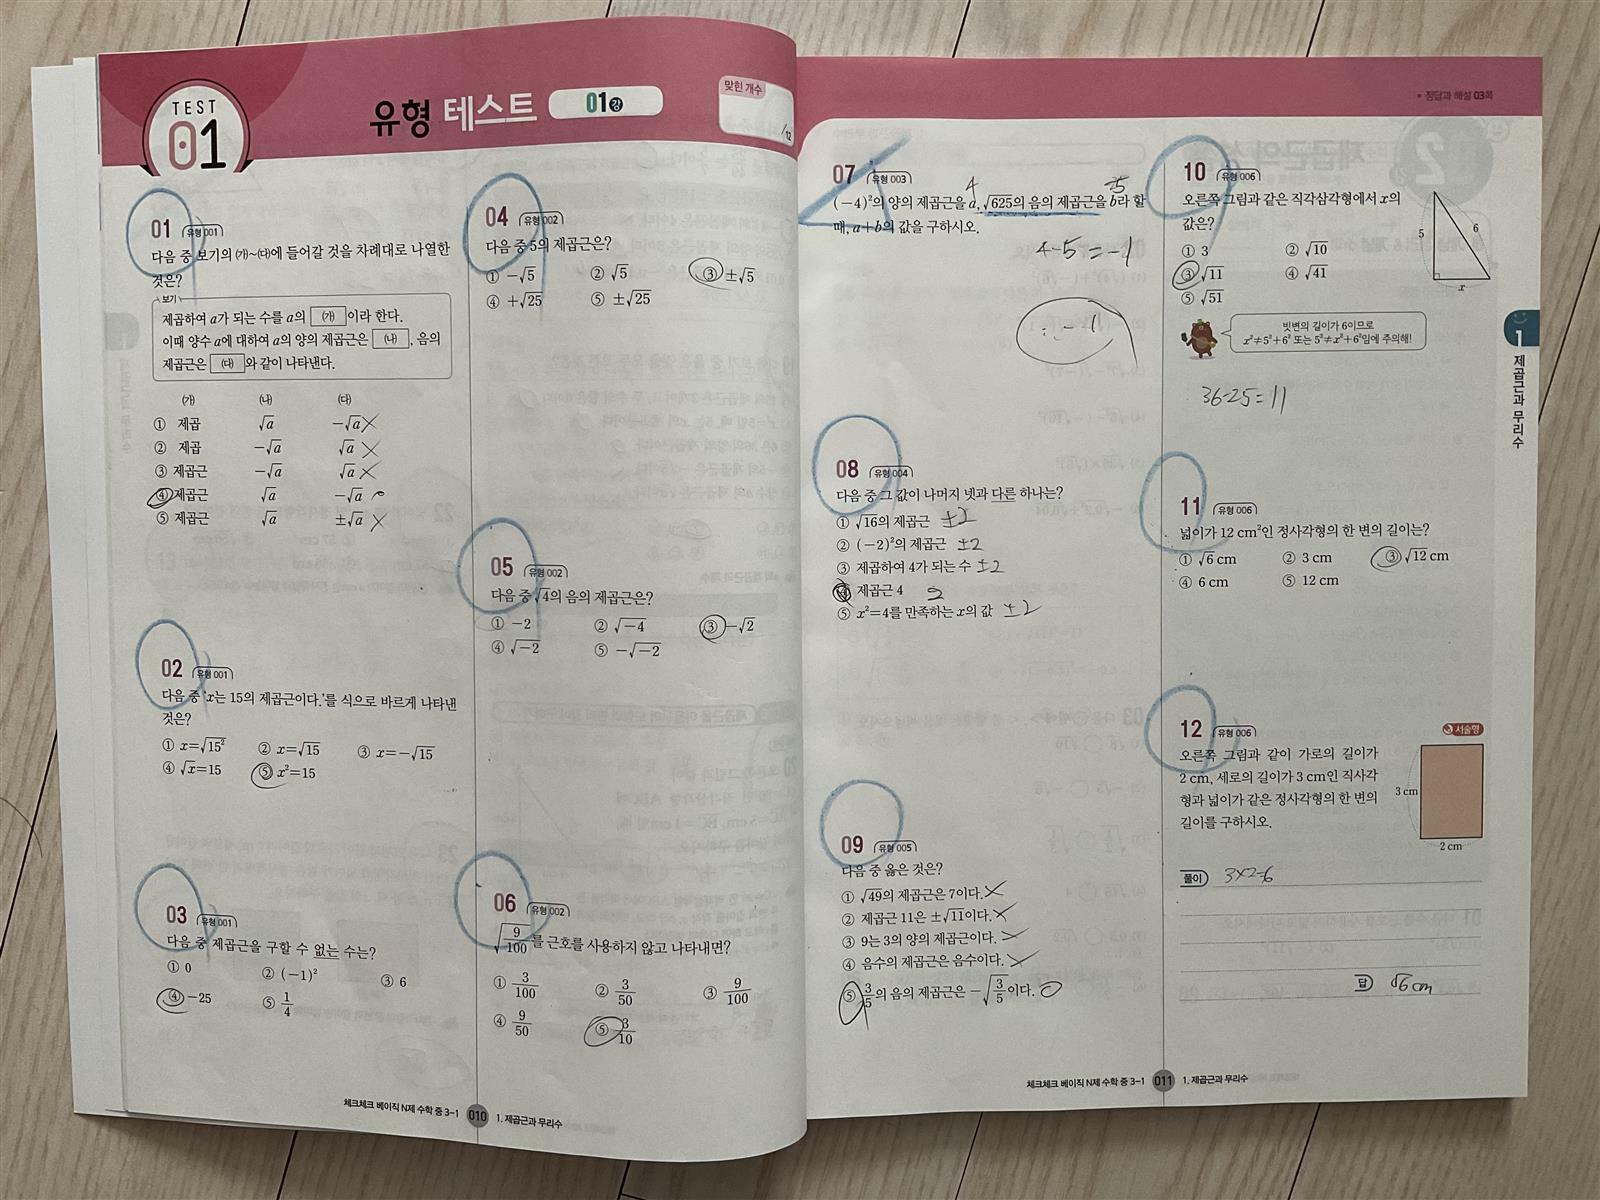 TEST
01
유형 테스트
01강
맞힌 개수
/12
01 유형 001
다음 중 보기의 ㈎~㈐에 들어갈 것을 차례대로 나열한
것은?
보기
제곱하여 a가 되는 수를 a의 ㈎ 이라 한다.
이때 양수 a에 대하여 a의 양의 제곱근은 ㈏, 음의
제곱근은 ㈐ 와 같이 나타낸다.
㈎ ㈏ ㈐
① 제곱 √a -√a ×
② 제곱 -√a √a ×
③ 제곱근 -√a √a ×
④ 제곱근 √a -√a
⑤ 제곱근 √a ±√a ×
02 유형 001
다음 중 ‘x는 15의 제곱근이다.’를 식으로 바르게 나타낸
것은?
① x=√15² ② x=√15 ③ x=-√15
④ √x=15 ⑤ x²=15
03 유형 001
다음 중 제곱근을 구할 수 없는 수는?
① 0 ② (-1)² ③ 6
④ -25 ⑤ 1/4
04 유형 002
다음 중 5의 제곱근은?
① -√5 ② √5 ③ ±√5
④ +√25 ⑤ ±√25
05 유형 002
다음 중 √4의 음의 제곱근은?
① -2 ② √-4 ③ -√2
④ √-2 ⑤ -√-2
06 유형 002
√9/100 를 근호를 사용하지 않고 나타내면?
① 3/100 ② 3/50 ③ 9/100
④ 9/50 ⑤ 3/10
체크체크 베이직 N제 수학 중 3-1 010 1. 제곱근과 무리수
• 정답과 해설 03쪽
07 유형 003
4
(-4)²의 양의 제곱근을 a, √625의 음의 제곱근을 b라 할
때, a+b의 값을 구하시오.
4-5=-1
∴ -1
08 유형 004
다음 중 그 값이 나머지 넷과 다른 하나는?
① √16의 제곱근 ±2
② (-2)²의 제곱근 ±2
③ 제곱하여 4가 되는 수 ±2
④ 제곱근 4 2
⑤ x²=4를 만족하는 x의 값 ±2
09 유형 005
다음 중 옳은 것은?
① √49의 제곱근은 7이다. ×
② 제곱근 11은 ±√11이다. ×
③ 9는 3의 양의 제곱근이다. ×
④ 음수의 제곱근은 음수이다. ×
⑤ 3/5의 음의 제곱근은 -√3/5이다. ○
10 유형 006
오른쪽 그림과 같은 직각삼각형에서 x의
값은?
① 3 ② √10
③ √11 ④ √41
⑤ √51
5
6
x
빗변의 길이가 6이므로
x²≠5²+6² 또는 5²≠x²+6²임에 주의해!
36-25=11
11 유형 006
넓이가 12 cm²인 정사각형의 한 변의 길이는?
① √6 cm ② 3 cm ③ √12 cm
④ 6 cm ⑤ 12 cm
12 유형 006
서술형
오른쪽 그림과 같이 가로의 길이가
2 cm, 세로의 길이가 3 cm인 직사각
형과 넓이가 같은 정사각형의 한 변의
길이를 구하시오.
3 cm
2 cm
풀이 3×2=6
답 √6 cm
1
제곱근과 무리수
체크체크 베이직 N제 수학 중 3-1 011 1. 제곱근과 무리수